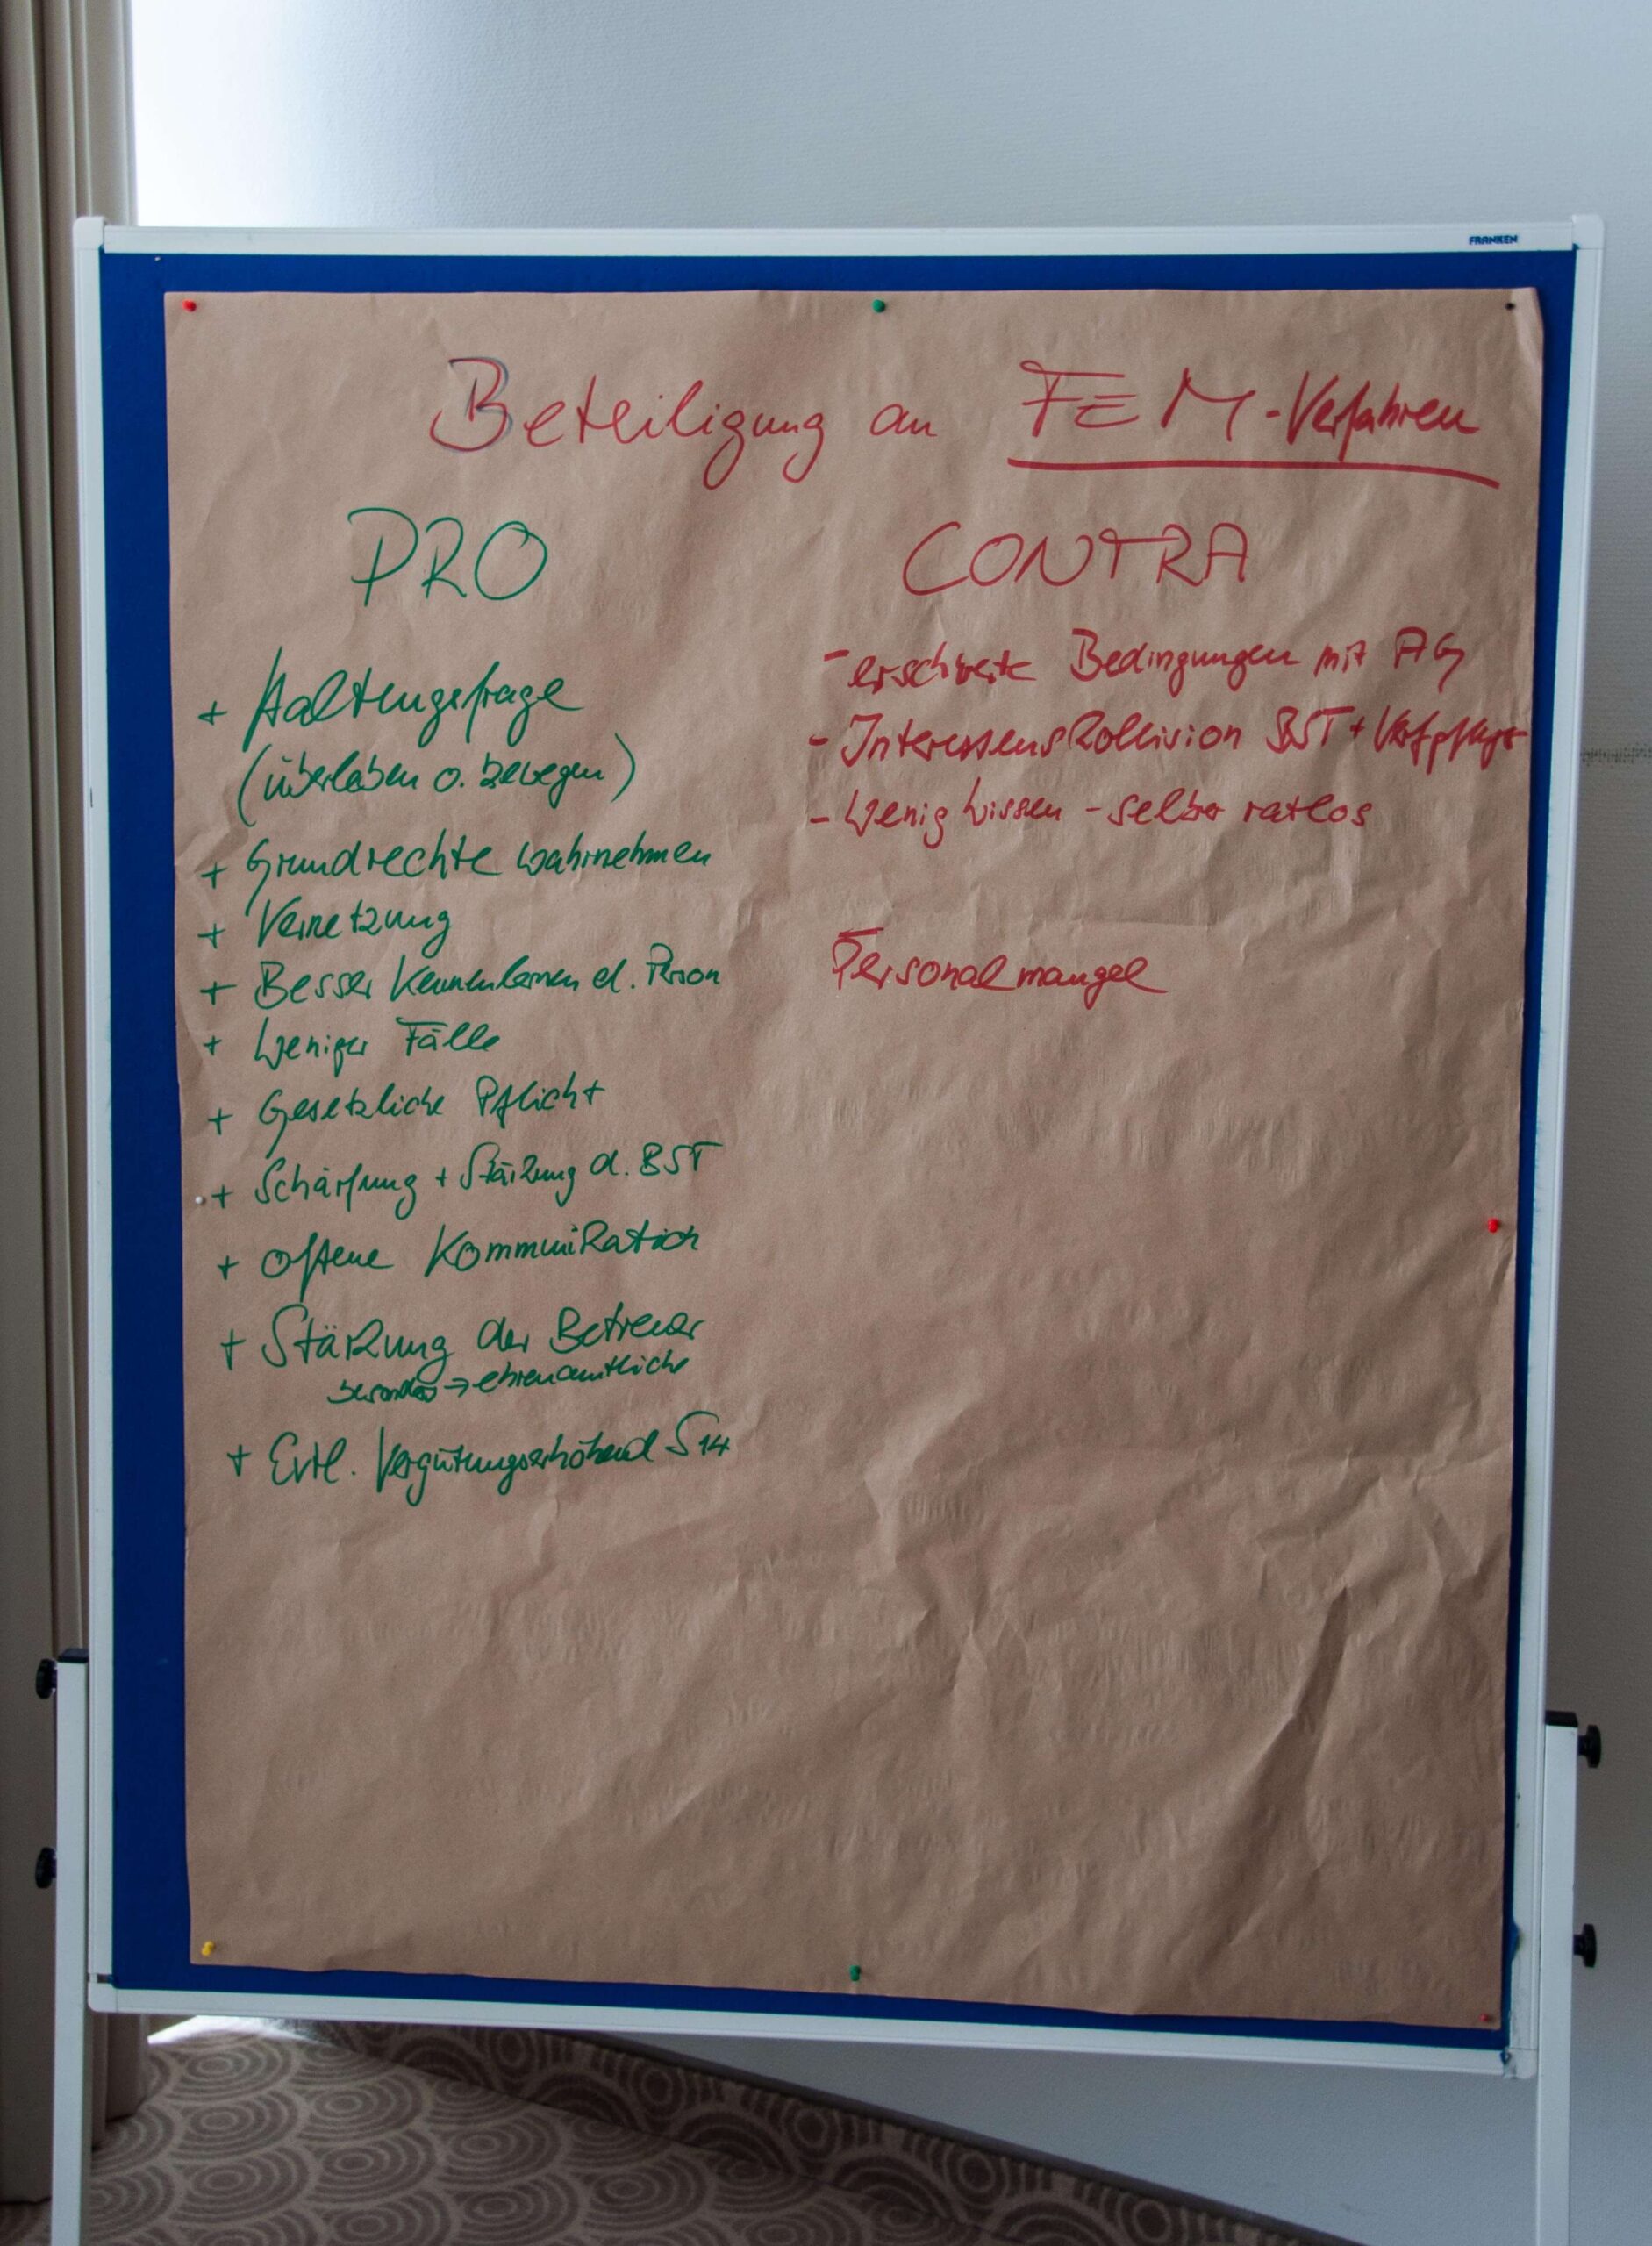 FRANKEN
Beteiligung an FEM-Verfahren
PRO
+ Haltungsfrage
(überleben o. bewegen)
+ Grundrechte wahrnehmen
+ Vernetzung
+ Besser Kennenlernen d. Person
+ Weniger Fälle
+ Gesetzliche Pflicht
+ Schärfung + Stärkung d. BST
+ offene Kommunikation
+ Stärkung der Betreuer
besonders → ehrenamtliche
+ Evtl. Vergütungserhöhend S14
CONTRA
- erschwerte Bedingungen mit AG
- Interessenskollision BST +
- Wenig Wissen - selber ratlos
Personalmangel